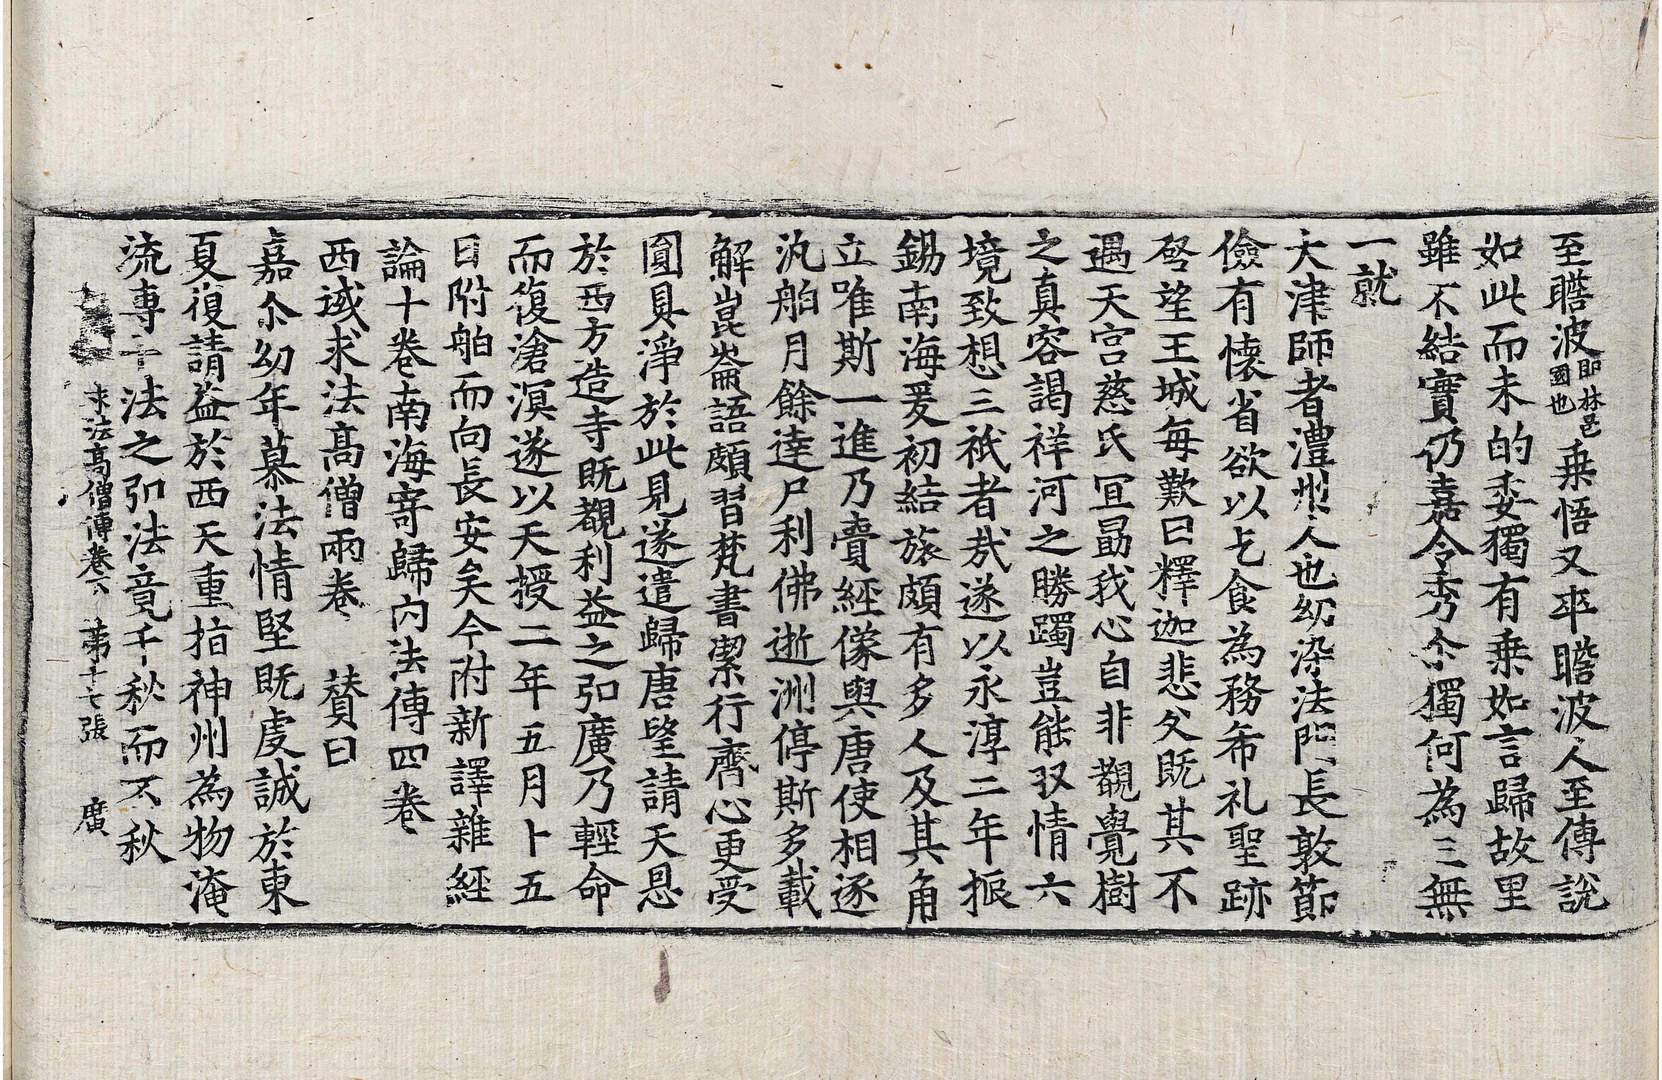 至瞻波即林邑國也乗悟又卒瞻波人至傳說
如此而未的委獨有乗如言歸故里
雖不結實仍嘉令秀尒獨何為三無
一就
大津師者澧州人也幼染法門長敦節
儉有懷省欲以乞食為務希礼聖跡
啓望王城每歎曰釋迦悲父既其不
遇天宮慈氏冝勗我心自非覩覺樹
之真容謁祥河之勝躅豈能収情六
境致想三祇者㢤遂以永淳二年振
錫南海爰初結旅頗有多人及其角
立唯斯一進乃賷經像與唐使相逐
汎舶月餘達尸利佛逝洲停斯多載
解崑崙語頗習梵書潔行齊心更受
圓具淨於此見遂遣歸唐望請天恩
於西方造寺既覩利益之弘廣乃輕命
而復滄溟遂以天授二年五月卜五
日附舶而向長安矣今附新譯雜經
論十卷南海寄歸內法傳四卷
西域求法髙僧傳兩卷　賛曰
嘉尒幼年慕法情堅既虔誠於東
夏復請益於西天重指神州為物淹
流專十法之弘法竟千秋而不秋
求法髙僧傳卷六　第十七張　廣